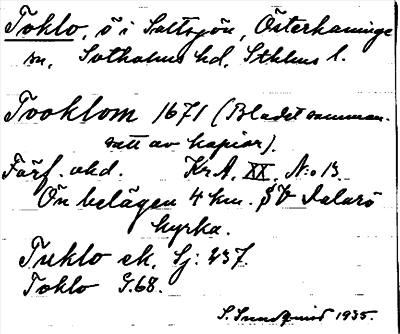 Toklo, ö i Saltsjön, Österhaninge
sn, Sotholms hd, Sthlms l.
Trooklom 1671 (Bladet samman-
satt av kopior).
Förf. okd. Kr.A. XX. N:o 13
Ön belägen 4 km. SV Dalarö
kyrka.
Tuklo ek. Sj: 237
Toklo G.68.
S. Sundquist 1935.